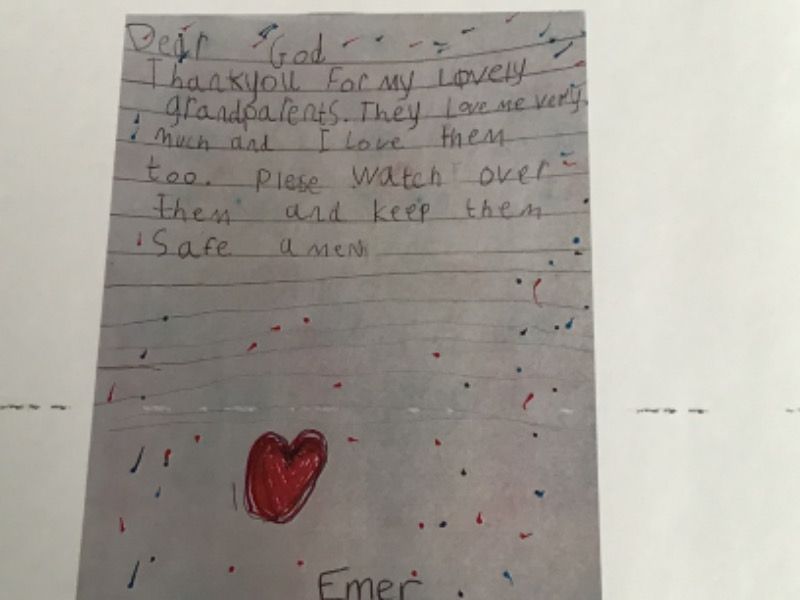 Dear God
Thankyou for my Lovely
grandparents. They Love me very
much and I Love them
too. Plese watch over
them and keep them
Safe amen
Emer